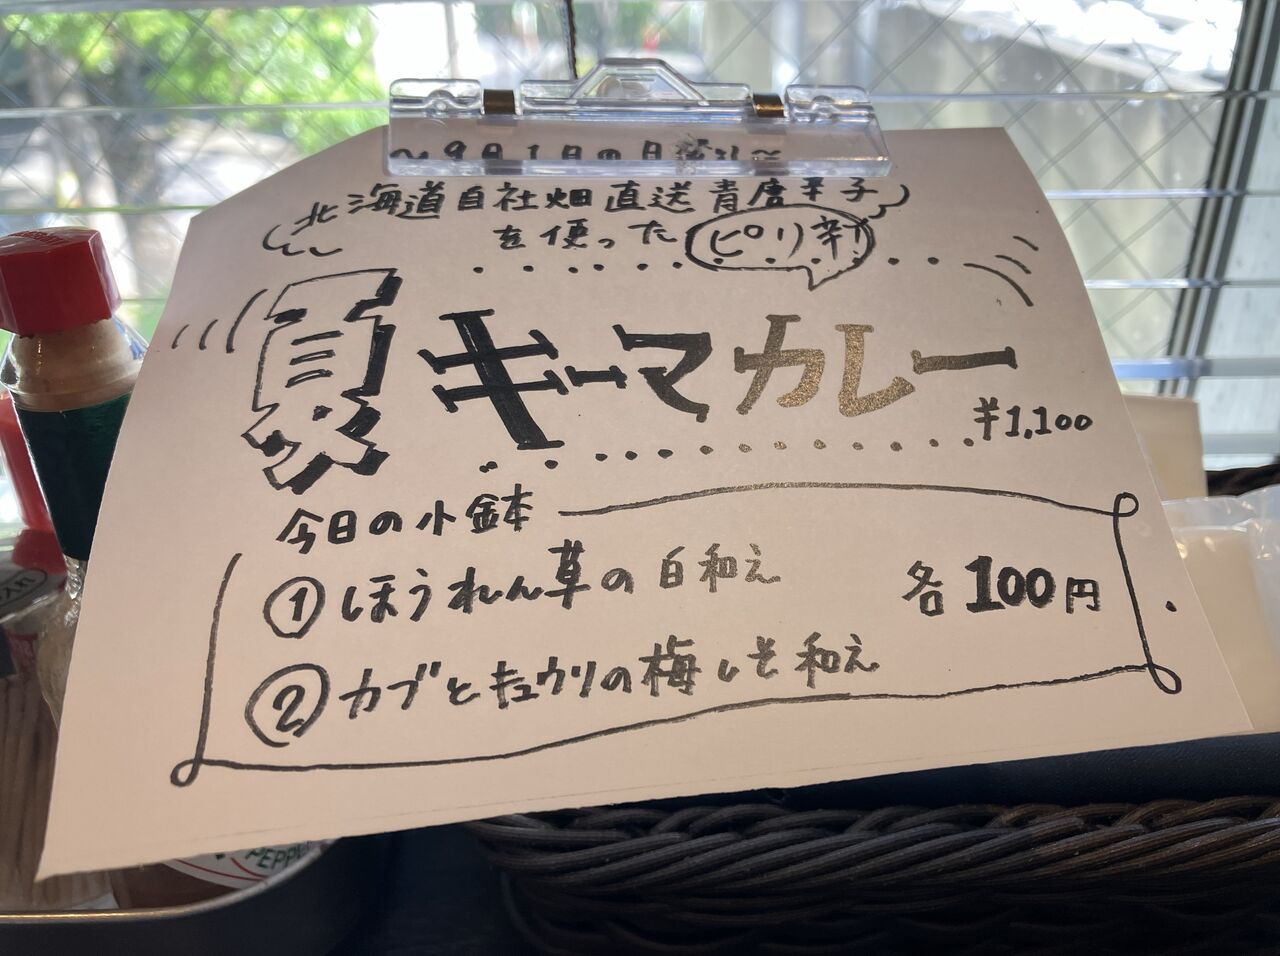 ~9月1日の日替り~
北海道自社畑直送青唐辛子
を使ったピリ辛!
夏キーマカレー
¥1,100
今日の小鉢
①ほうれん草の白和え
各100円
②カブとキュウリの梅しそ和え
PEPP